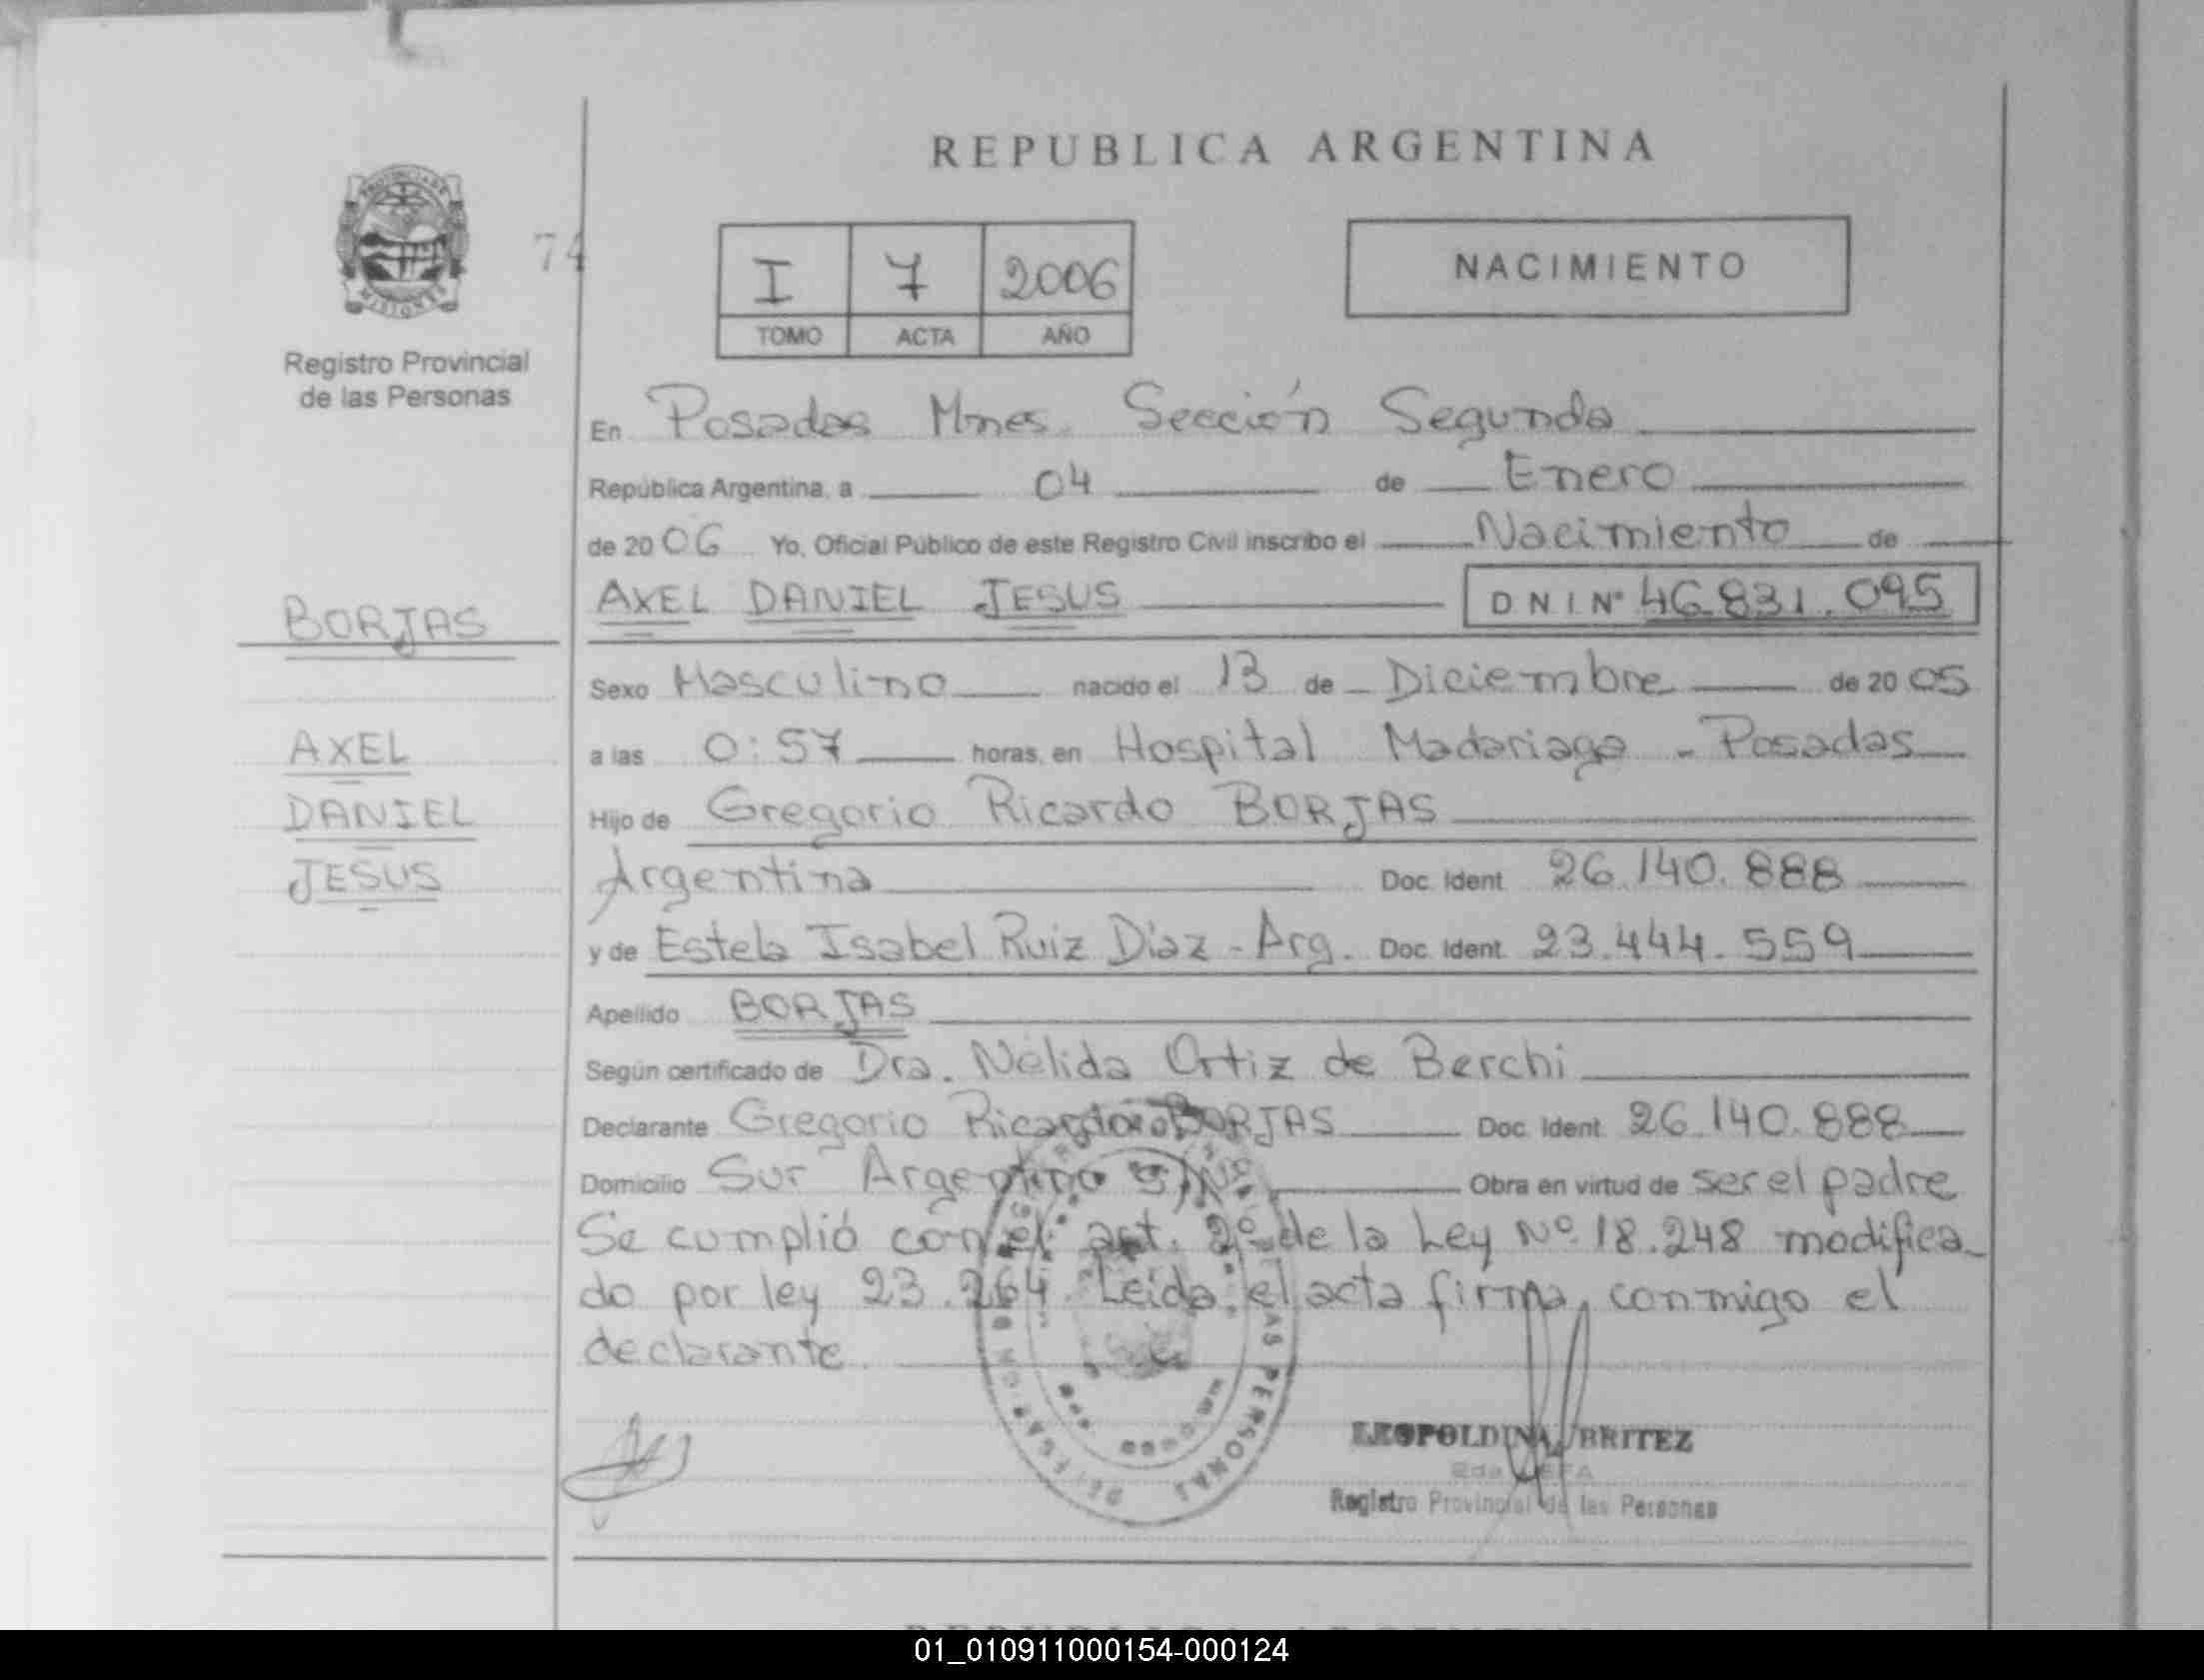 REPUBLICA ARGENTINA
74
I 7 2006
TOMO ACTA AÑO
NACIMIENTO
PROVINCIA DE
MISIONES
Registro Provincial
de las Personas
En Posadas Mnes. Sección Segunda
República Argentina, a 04 de Enero
de 2006 Yo, Oficial Público de este Registro Civil inscribo el Nacimiento de
AXEL DANIEL JESUS D N I N° 46.831.095
BORJAS
Sexo Masculino nacido el 13 de Diciembre de 2005
AXEL
a las 0:57 horas, en Hospital Madariaga - Posadas
DANIEL
Hijo de Gregorio Ricardo BORJAS
JESUS
Argentina Doc. Ident. 26.140.888
y de Estela Isabel Ruiz Diaz - Arg. Doc. Ident. 23.444.559
Apellido BORJAS
Según certificado de Dra. Nélida Ortiz de Berchi
Declarante Gregorio Ricardo BORJAS Doc. Ident. 26.140.888
Domicilio Sur Argentino S/N° Obra en virtud de ser el padre
Se cumplió con el art. 2° de la Ley N° 18.248 modifica_
do por ley 23.264. Leída el acta firma, conmigo el
declarante.
LAS PERSONAS
LEOPOLDINA BRITEZ
2da JEFA
Registro Provincial de las Personas
01_010911000154-000124